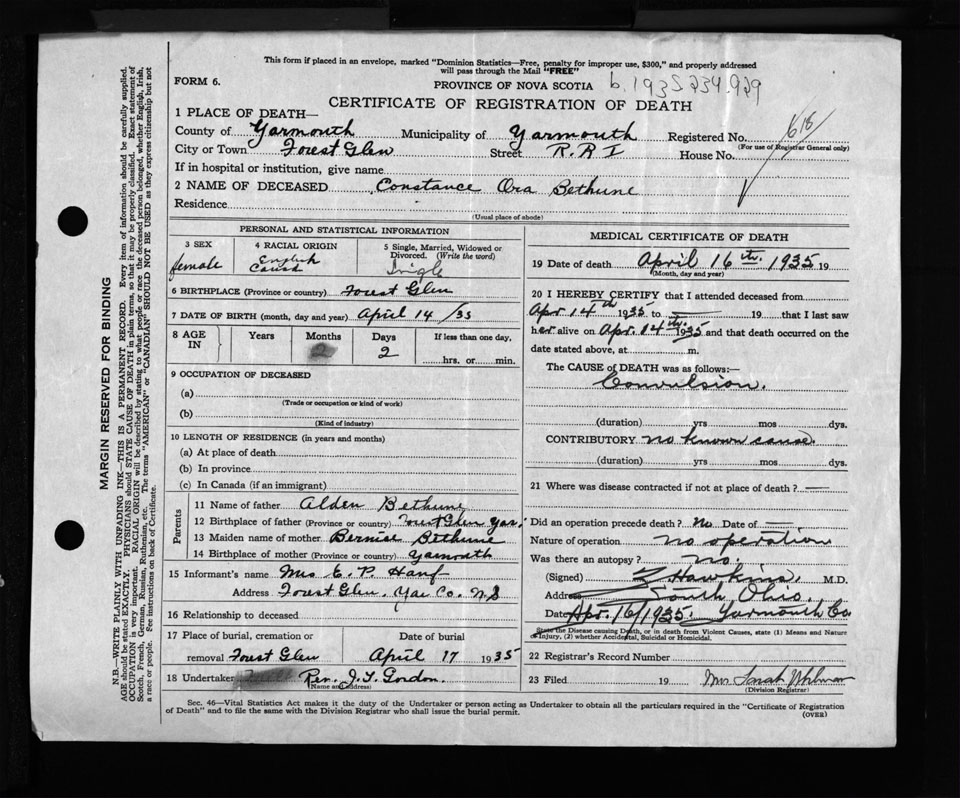 This form if placed in an envelope, marked "Dominion Statistics—Free, penalty for improper use, $300," and properly addressed
will pass through the Mail "FREE"
FORM 6.
PROVINCE OF NOVA SCOTIA b.1935.234.929
CERTIFICATE OF REGISTRATION OF DEATH
1 PLACE OF DEATH—
County of Yarmouth Municipality of Yarmouth Registered No. 618
(For use of Registrar General only)
City or Town Forest Glen Street R.R I House No.
If in hospital or institution, give name
2 NAME OF DECEASED Constance Ora Bethune
Residence
(Usual place of abode)
PERSONAL AND STATISTICAL INFORMATION
3 SEX 4 RACIAL ORIGIN 5 Single, Married, Widowed or
Divorced. (Write the word)
female English Single
6 BIRTHPLACE (Province or country) Forest Glen
7 DATE OF BIRTH (month, day and year) April 14 /35
8 AGE
IN
Years Months Days If less than one day,
2 2 hrs. or min.
9 OCCUPATION OF DECEASED
(a)
(Trade or occupation or kind of work)
(b)
(Kind of industry)
10 LENGTH OF RESIDENCE (in years and months)
(a) At place of death
(b) In province
(c) In Canada (if an immigrant)
Parents
11 Name of father Alden Bethune
12 Birthplace of father (Province or country) Forest Glen Yar.
13 Maiden name of mother Bernise Bethune
14 Birthplace of mother (Province or country) Yarmouth
15 Informant's name Mrs E. P.
Address Forest Glen. Yar Co. N.S
16 Relationship to deceased
17 Place of burial, cremation or Date of burial
removal Forest Glen April 17 1935
18 Undertaker Rev. J. T. Gordon.
(Name and address)
MEDICAL CERTIFICATE OF DEATH
19 Date of death April 16 th. 1935 19
(Month, day and year)
20 I HEREBY CERTIFY that I attended deceased from
Apr 14th 1935 to — 19 that I last saw
her alive on Apr. 14th. 1935 and that death occurred on the
date stated above, at m.
The CAUSE of DEATH was as follows:—
Convulsion.
(duration) yrs mos dys.
CONTRIBUTORY no known cause.
(duration) yrs mos dys.
21 Where was disease contracted if not at place of death? —
Did an operation precede death? No Date of —
Nature of operation no operation
Was there an autopsy? no
(Signed) Hawkins. M.D.
Address South Ohio.
Date Apr. 16/1935. Yarmouth Co
State the Disease causing Death, or in death from Violent Causes, state (1) Means and Nature
of Injury, (2) whether Accidental, Suicidal or Homicidal.
22 Registrar's Record Number
23 Filed 19 Mrs. Sarah
(Division Registrar)
Sec. 46—Vital Statistics Act makes it the duty of the Undertaker or person acting as Undertaker to obtain all the particulars required in the "Certificate of Registration
of Death" and to file the same with the Division Registrar who shall issue the burial permit.
(OVER)
MARGIN RESERVED FOR BINDING
N.B.—WRITE PLAINLY WITH UNFADING INK—THIS IS A PERMANENT RECORD. Every item of information should be carefully supplied.
AGE should be stated EXACTLY. PHYSICIANS should STATE CAUSE OF DEATH in plain terms, so that it may be properly classified. Exact statement of
OCCUPATION is very important. RACIAL ORIGIN will be described by stating to what people or race the deceased person belonged, whether English, Irish,
Scotch, French, German, Russian, Ruthenian, etc. The terms "AMERICAN" or "CANADIAN" SHOULD NOT BE USED as they express citizenship but not
a race or people. See instructions on back of Certificate.